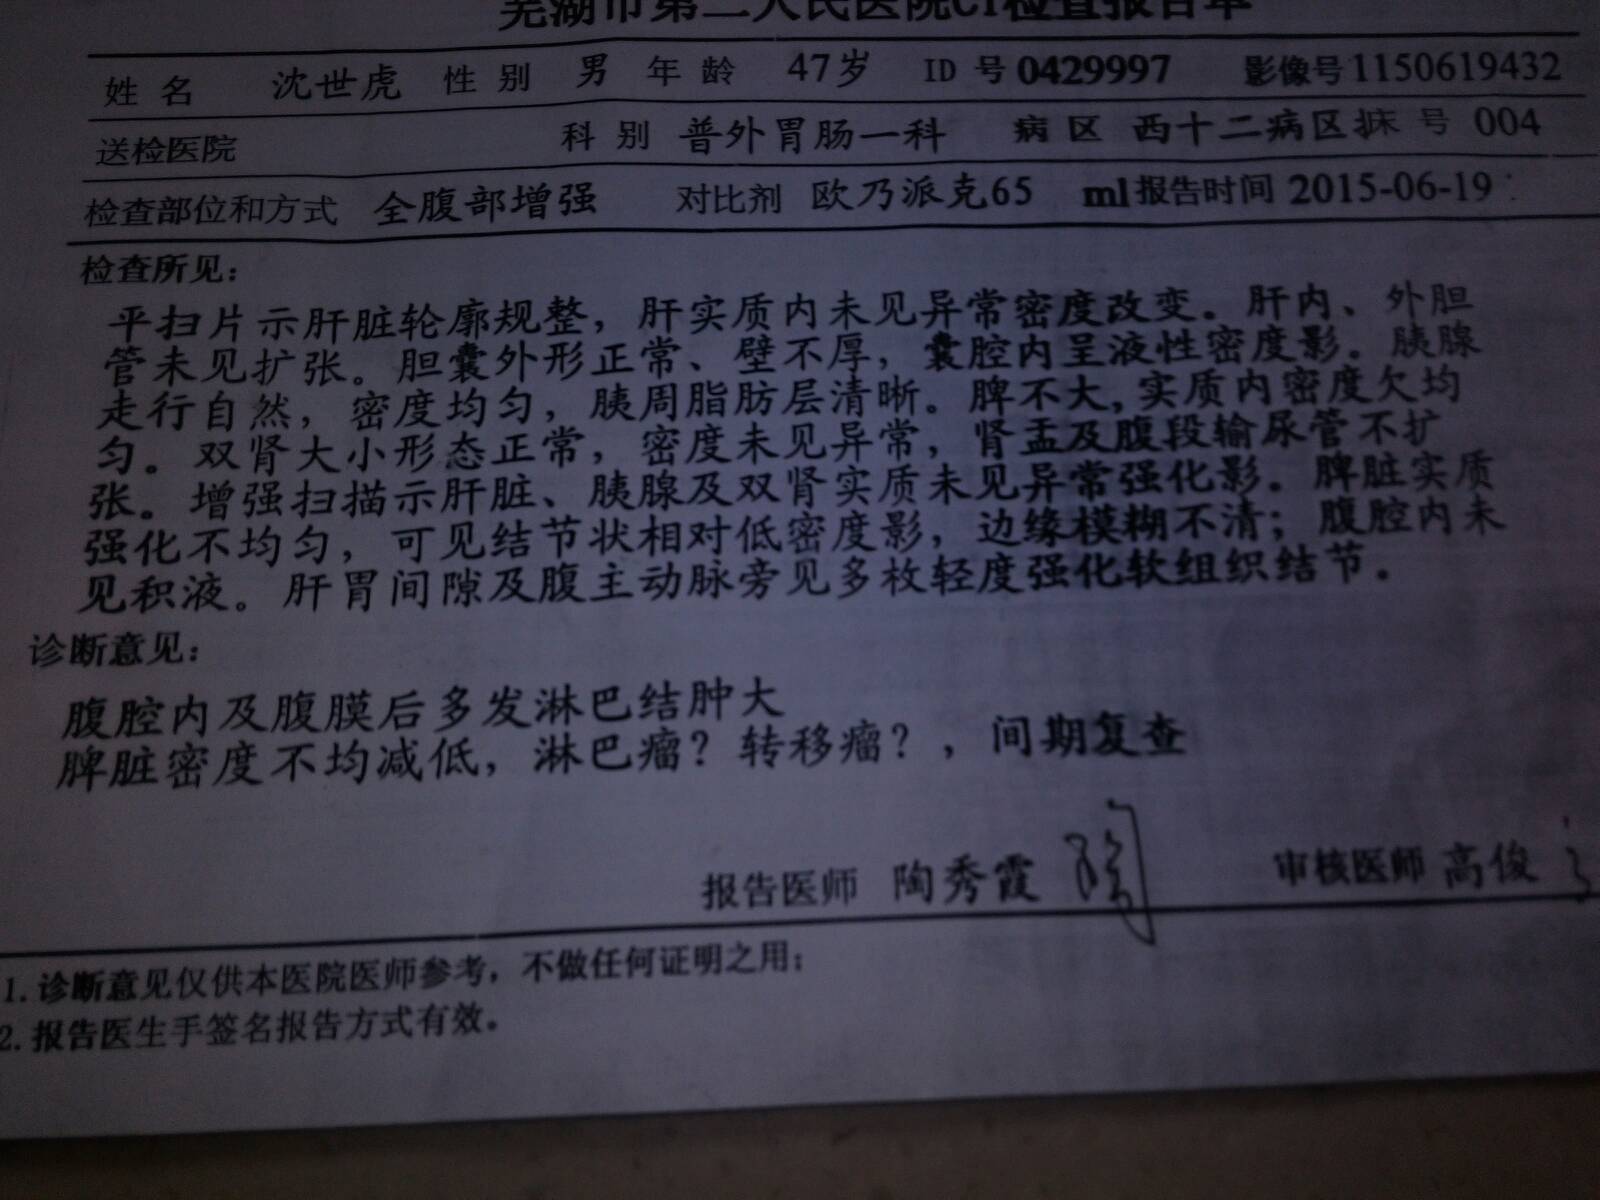 芜湖市第二人民医院CT检查报告单
姓名 沈世虎 性别 男 年龄 47岁 ID号 0429997 影像号 1150619432
送检医院 科别 普外胃肠一科 病区 西十二病区 床号 004
检查部位和方式 全腹部增强 对比剂 欧乃派克65 ml 报告时间 2015-06-19
检查所见：
平扫片示肝脏轮廓规整，肝实质内未见异常密度改变。肝内、外胆
管未见扩张。胆囊外形正常、壁不厚，囊腔内呈液性密度影。胰腺
走行自然，密度均匀，胰周脂肪层清晰。脾不大，实质内密度欠均
匀。双肾大小形态正常，密度未见异常，肾盂及腹段输尿管不扩
张。增强扫描示肝脏、胰腺及双肾实质未见异常强化影。脾脏实质
强化不均匀，可见结节状相对低密度影，边缘模糊不清；腹腔内未
见积液。肝胃间隙及腹主动脉旁见多枚轻度强化软组织结节。
诊断意见：
腹腔内及腹膜后多发淋巴结肿大
脾脏密度不均减低，淋巴瘤？转移瘤？，间期复查
报告医师 陶秀霞 审核医师 高俊
1. 诊断意见仅供本医院医师参考，不做任何证明之用；
2. 报告医生手签名报告方式有效。